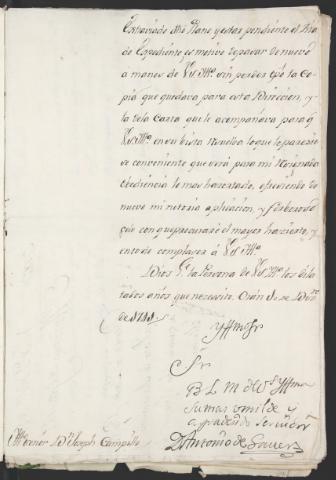 Extraviado dho Plano y estar pendiente el Rl.
de Expediente, es motivo de pasar de nuevo
a manos de VS. Illma. sin perder tpo. la Co
pia que quedava para esta Direccion, y
la dela Carta que le acompañava para q
VS. Illma. en su bista Resuelva lo que le parecie
se conveniente que será para mi Resignada
obediencia lo mas hazertado, ofreciendo de
nuevo mi notoria aplicacion, y
con que procuraré el mayor hazierto, y
en todo complazer á VS. Illma.
Dios Gue. la Persona de VS. Illma. los dila
tados años que necesito. Orán
de 1741.
Yllmo. Sr.
Sr.
B L M de VS. Yllma.
su mas umilde y
agradecido servidor
Dn. Antonio de
Illmo. señor Dn. Joseph Campillo